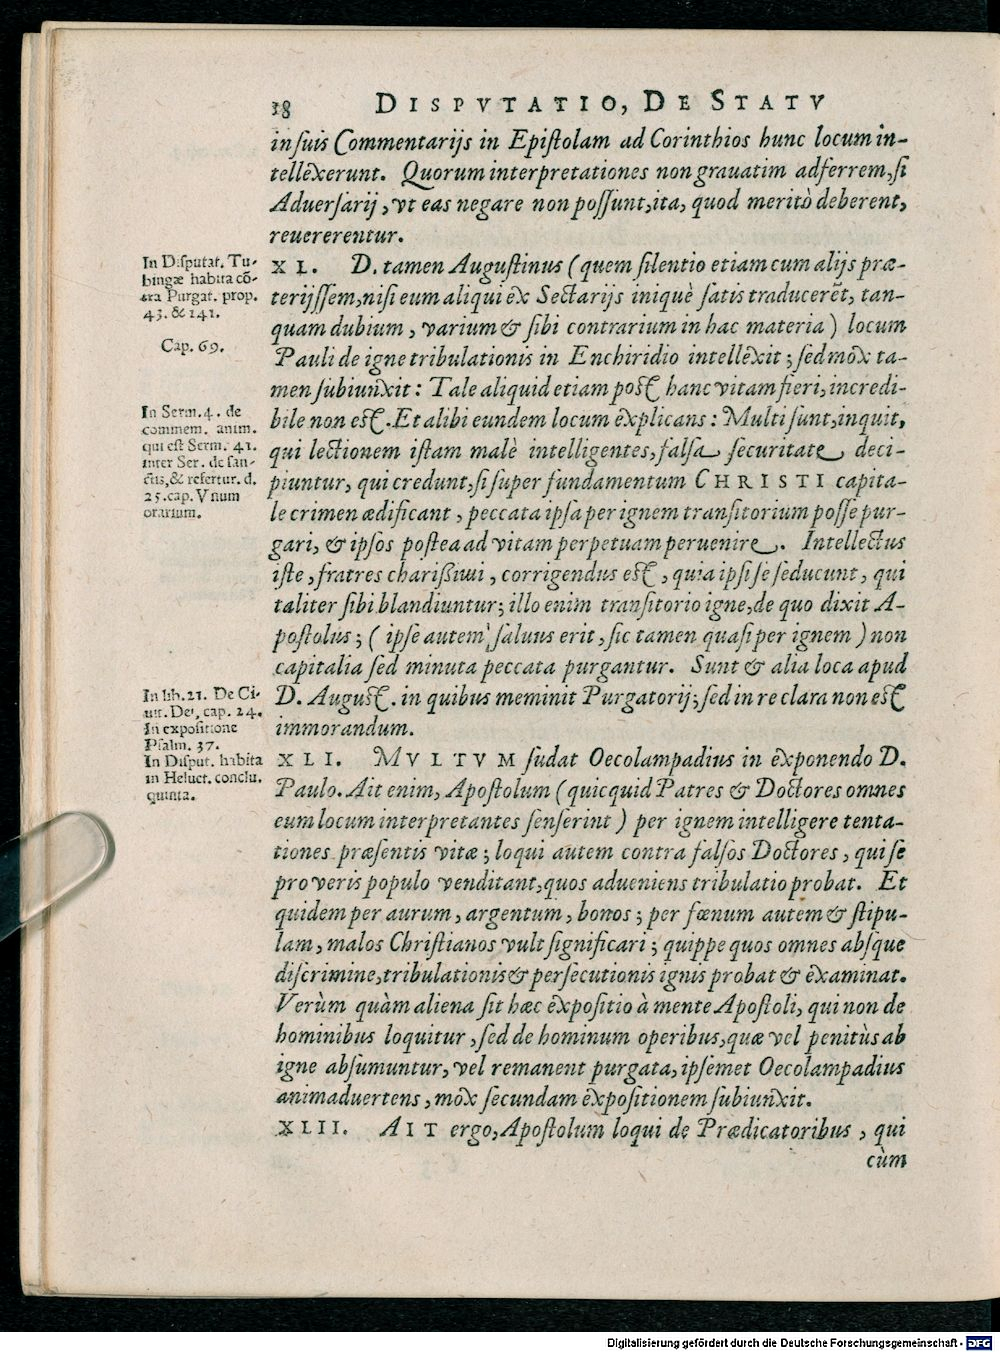 18 DISPVTATIO, DE STATV
in suis Commentarijs in Epistolam ad Corinthios hunc locum in-
tellexerunt. Quorum interpretationes non grauatim adferrem, si
Aduersarij, vt eas negare non possunt, ita, quod meritò deberent,
reuererentur.
In Disputat. Tu-
bingæ habita cō-
tra Purgat. prop.
43. & 141.
Cap. 69.
XL. D. tamen Augustinus (quem silentio etiam cum alijs præ-
terijssem, nisi eum aliqui ex Sectarijs iniquè satis traducerēt, tan-
quam dubium, varium & sibi contrarium in hac materia) locum
Pauli de igne tribulationis in Enchiridio intellexit; sed mox ta-
men subiunxit: Tale aliquid etiam post hanc vitam fieri, incredi-
bile non est. Et alibi eundem locum explicans: Multi sunt, inquit,
In Serm. 4. de
commem. anim.
qui est Serm. 41.
inter Ser. de san-
ctis, & refertur. d.
25. cap. Vnum
orarium.
qui lectionem istam malè intelligentes, falsa securitate deci-
piuntur, qui credunt, si super fundamentum CHRISTI capita-
le crimen ædificant, peccata ipsa per ignem transitorium posse pur-
gari, & ipsos postea ad vitam perpetuam peruenire. Intellectus
iste, fratres charißimi, corrigendus est, quia ipsi se seducunt, qui
taliter sibi blandiuntur; illo enim transitorio igne, de quo dixit A-
postolus; (ipse autem saluus erit, sic tamen quasi per ignem) non
capitalia sed minuta peccata purgantur. Sunt & alia loca apud
D. August. in quibus meminit Purgatorij; sed in re clara non est
immorandum.
In lib. 21. De Ci-
uit. Dei, cap. 24.
In expositione
Psalm. 37.
In Disput. habita
in Heluet. conclu.
quinta.
XLI. MVLTVM sudat Oecolampadius in exponendo D.
Paulo. Ait enim, Apostolum (quicquid Patres & Doctores omnes
eum locum interpretantes senserint) per ignem intelligere tenta-
tiones præsentis vitæ; loqui autem contra falsos Doctores, qui se
pro veris populo venditant, quos adueniens tribulatio probat. Et
quidem per aurum, argentum, bonos; per fœnum autem & stipu-
lam, malos Christianos vult significari; quippe quos omnes absque
discrimine, tribulationis & persecutionis ignis probat & examinat.
Verùm quàm aliena sit hæc expositio à mente Apostoli, qui non de
hominibus loquitur, sed de hominum operibus, quæ vel penitùs ab
igne absumuntur, vel remanent purgata, ipsemet Oecolampadius
animaduertens, mox secundam expositionem subiunxit.
XLII. AIT ergo, Apostolum loqui de Prædicatoribus, qui
cùm
Digitalisierung gefördert durch die Deutsche Forschungsgemeinschaft - DFG